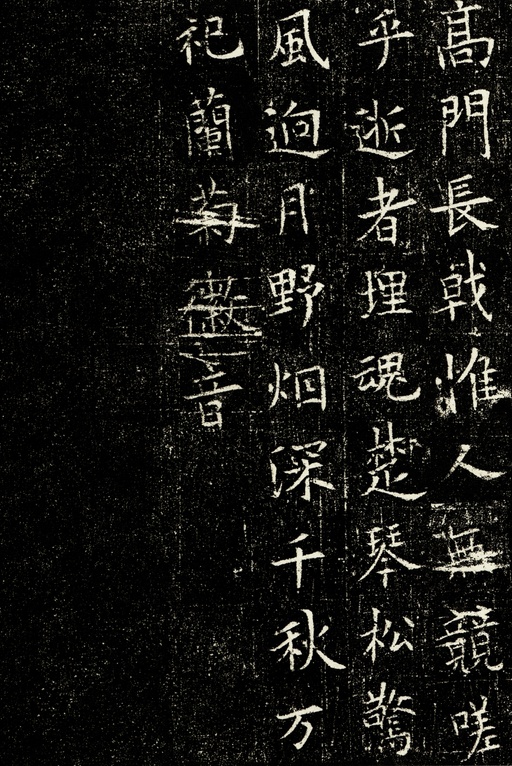 髙門長戟惟人無競嗟
乎逝者埋魂楚琴松驚
風逈月野烟深千秋万
祀蘭菊徽音